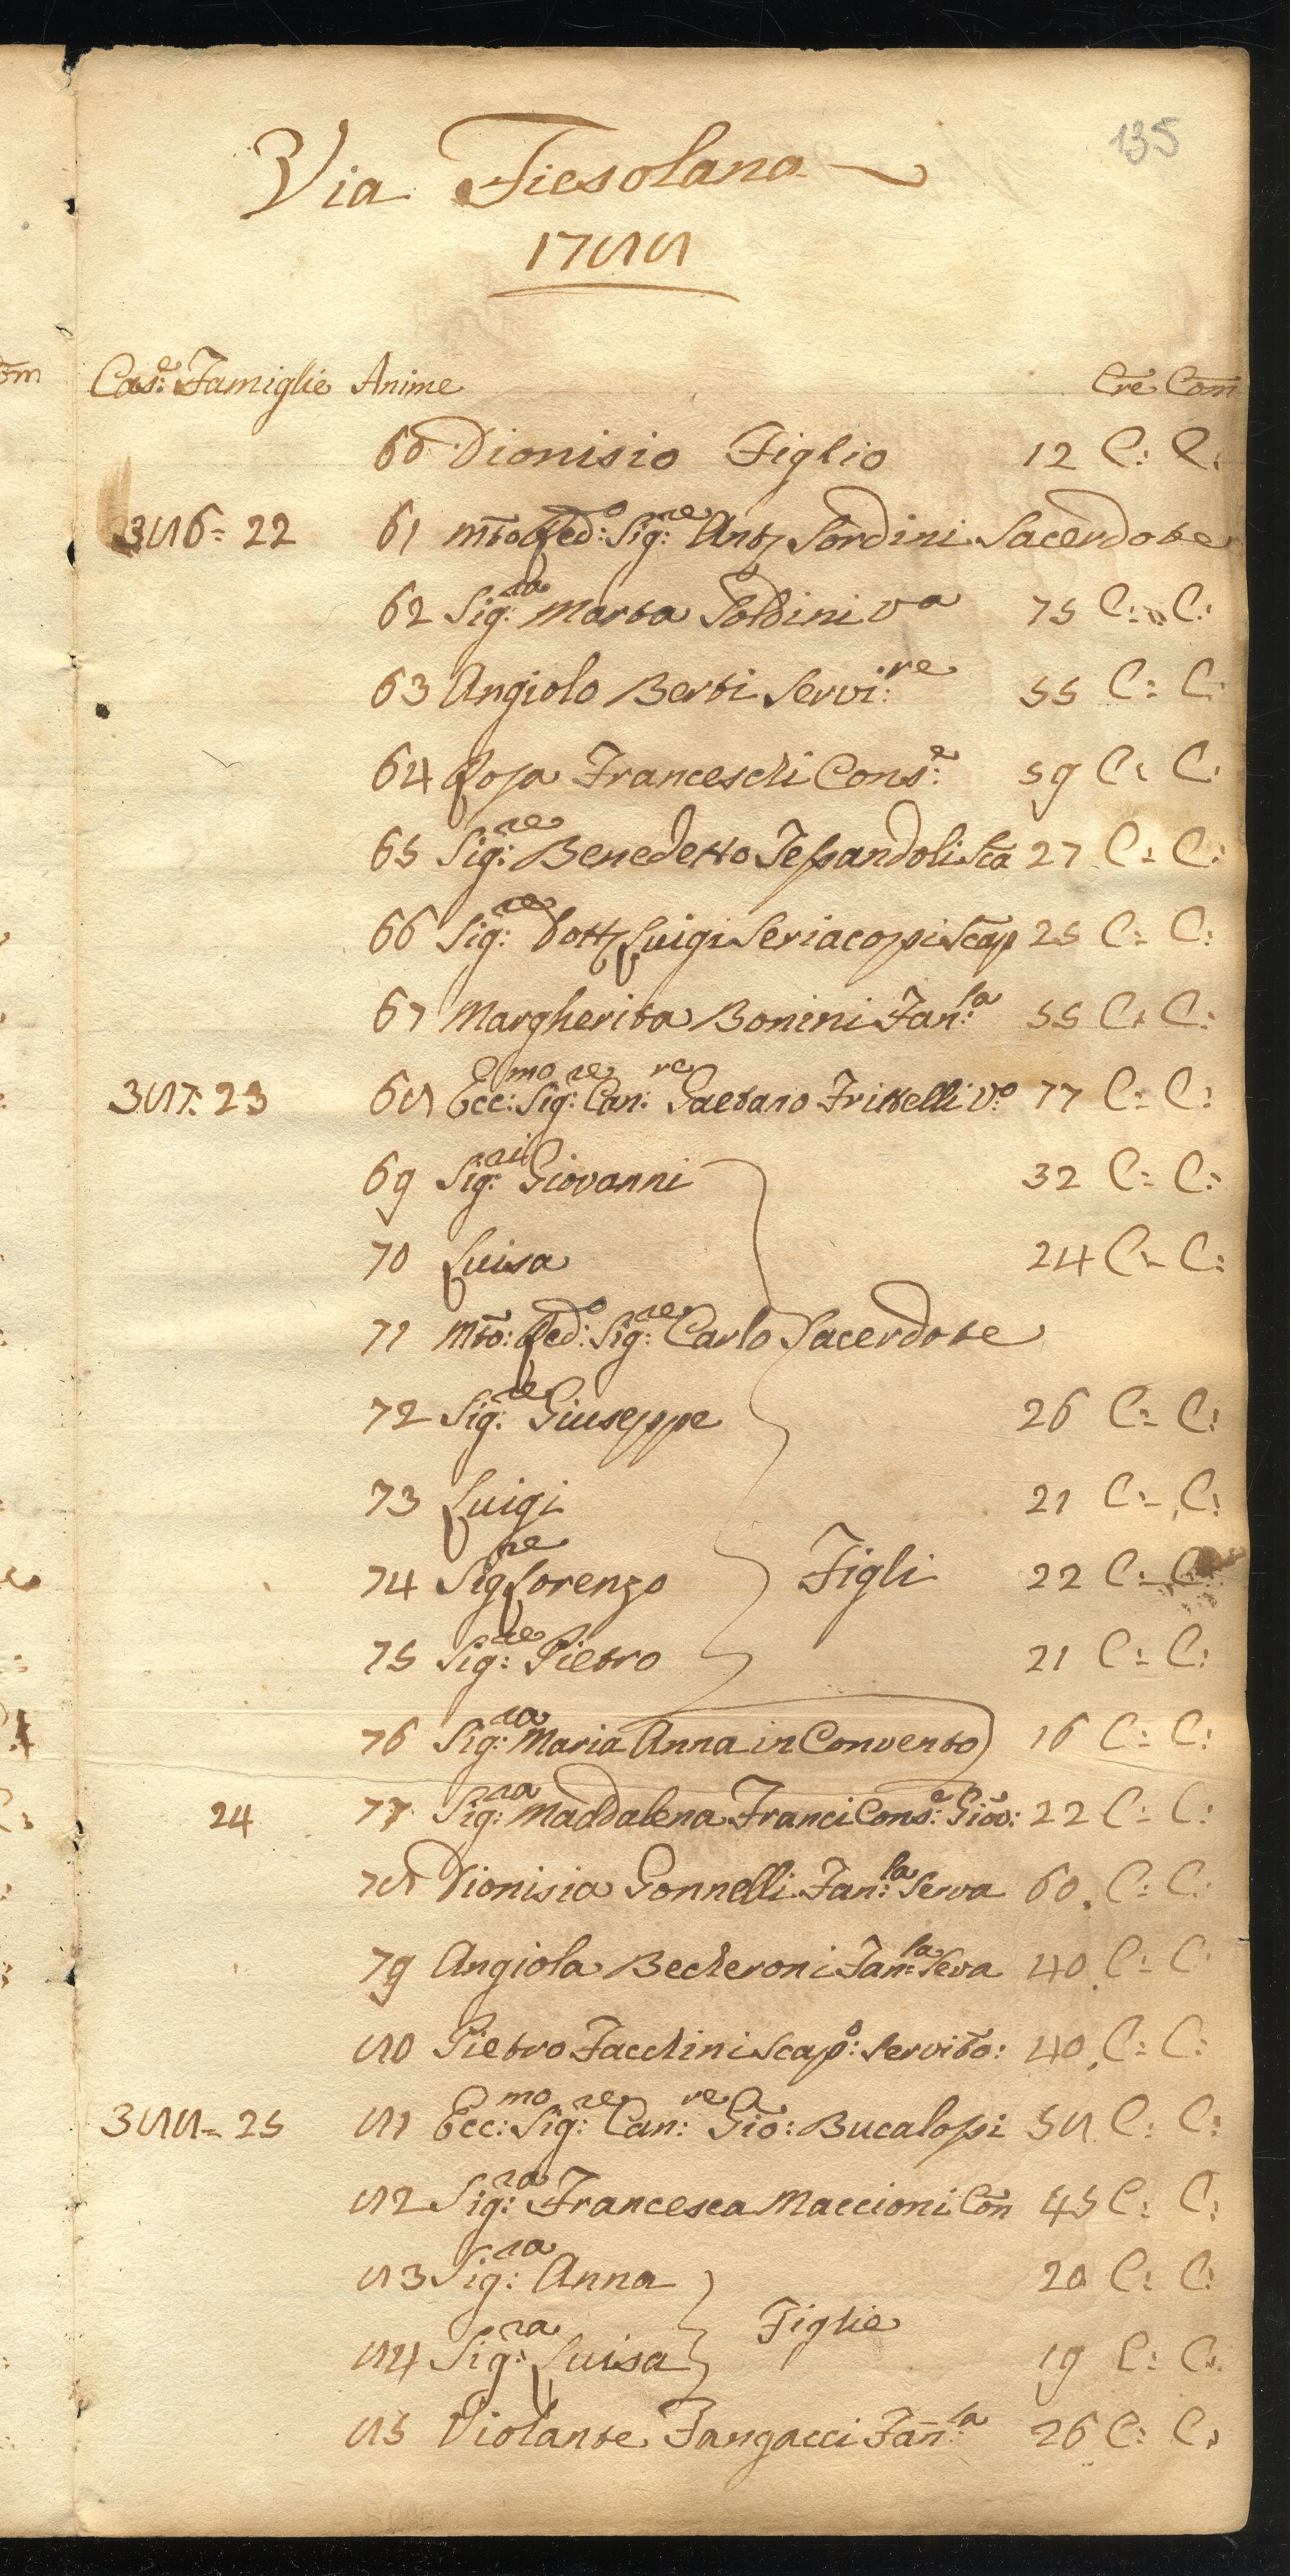 135
Via Fiesolana
1788
om
Cas:e Famiglie Anime Cre Com
60 Dionisio Figlio 12 C: C:
386= 22 61 Mto Red:o Sig:re Anto Sordini Sacerdote
62 Sig:ra Marta Soldini Va 75 C: C:
63 Angiolo Berti Servi:re 55 C: C:
64 Rosa Franceschi Cons:e 59 C: C:
65 Sig:re Benedetto Tessandoli Sca 27 C: C:
66 Sig:re Dott Luigi Seriacopi Scap 25 C: C:
67 Margherita Bonini Fan:la 55 C: C:
387= 23 68 Ecc:mo Sig:re Can:re Gaetano Frittelli V:o 77 C: C:
69 Sig:ri Giovanni 32 C: C:
70 Luisa 24 C: C:
71 Mto: Red:o Sig:re Carlo Sacerdote
72 Sig:re Giuseppe 26 C: C:
73 Luigi 21 C: C:
74 Sig:re Lorenzo Figli 22 C: C:
75 Sig:re Pietro 21 C: C:
76 Sig:ra Maria Anna in Convento 16 C: C:
24 77 Sig:ra Maddalena Franci Cons:e Giov: 22 C: C:
78 Dionisia Gonnelli Fan:la Serva 60 C: C:
79 Angiola Becheroni Fan:la Seva 40 C: C:
80 Pietro Facchini Scap:o Servito: 40 C: C:
388= 25 81 Ecc:mo Sig:re Can:re Gio: Bucalossi 58 C: C:
82 Sig:ra Francesca Maccioni Con 45 C: C:
83 Sig:ra Anna 20 C: C:
Figlie
84 Sig:ra Luisa 19 C: C:
85 Violante Fangacci Fan:la 26 C: C: